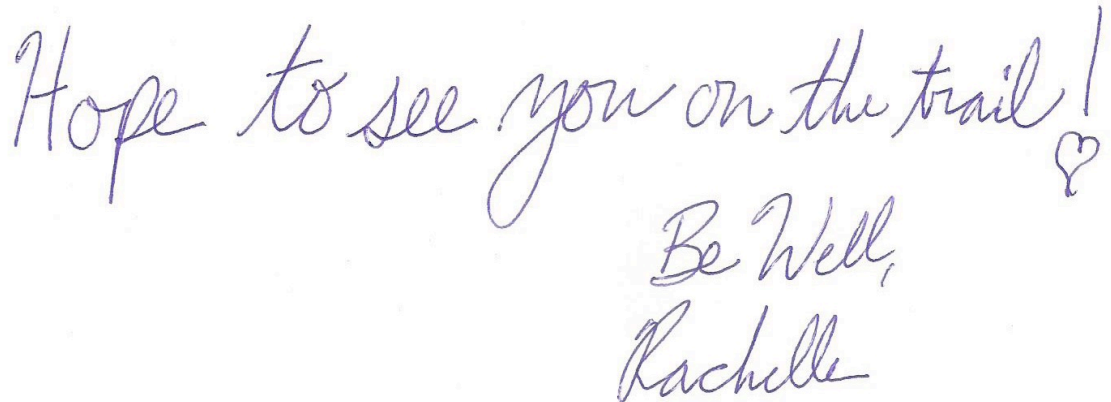 Hope to see you on the trail!
Be Well,
Rachelle